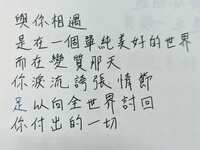 與你相遇
是在一個單純美好的世界
而在變質那天
你淚流誇張情節
足以向全世界討回
你付出的一切